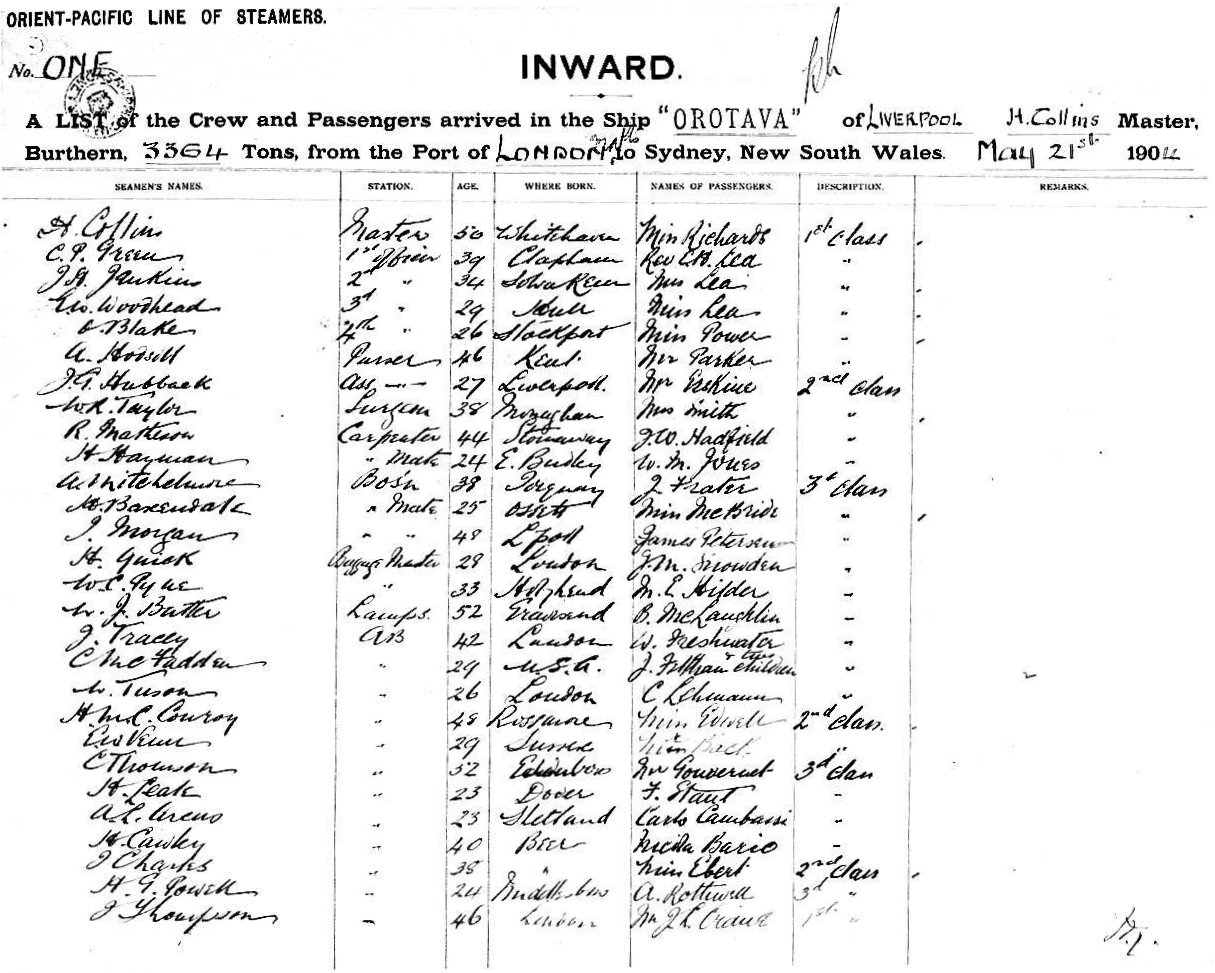 ORIENT-PACIFIC LINE OF STEAMERS.
No. ONE
INWARD.
A LIST of the Crew and Passengers arrived in the Ship "OROTAVA" of LIVERPOOL H. Collins Master,
Burthern, 3364 Tons, from the Port of LONDON to Sydney, New South Wales. May 21st 1904
SEAMEN'S NAMES. STATION. AGE. WHERE BORN. NAMES OF PASSENGERS. DESCRIPTION. REMARKS.
H. Collins Master 50 Whitehaven Miss Richards 1st Class
C. P. Green 1st Officer 39 Clapham Rev E.H. Lea "
J. H. Jenkins 2nd " 34 Mrs Lea "
E.W. Woodhead 3rd " 29 Hull Miss Lea "
O. Blake 4th " 26 Stockport Miss Power "
A. Hodsell Purser 46 Kent Mr Parker "
J. G. Hubback Ass -"- 27 Liverpool. Mr Erskine 2nd Class
W.R. Taylor Surgeon 38 Monaghan Mrs Smith "
R. Matheson Carpenter 44 Stornaway J.W. Hadfield "
H. Hayman " Mate 24 E. Budley W. M. Jones "
A. Mitchelmore Bos'n 38 Torquay J. Frater 3d Class
H. Baxendale " Mate 25 Ossett Miss McBride "
J. Morgan " " 48 L'pool James Petersen "
H. Quick Baggage Master 28 London J. M. Snowden "
W. C. Pyne " 33 Holyhead M. E. Hilder "
W. J. Butter Lamps. 52 Gravesend B. McLaughlin "
J. Tracey AB 42 London W. Freshwater "
C McFadden " 29 U.S.A. J. Feltham & two children "
W. Tuson " 26 London C Lehmann "
H. McC. Conroy " 48 Rossmore Miss Edwell 2nd Class.
E.W. Venn " 29 Sussex "
C Thomson " 52 Edinboro Mr Gouvernet 3d Class
H. Peak " 23 Dover F. Staut "
A. L. Arcus " 23 Shetland Carlo Cambassi "
H. Cawley " 40 Beer Bario "
J Charles " 38 " Miss Ebert 2nd Class
H. G. Powell " 24 Middlesboro A. Rothwell 3d "
J Thompson " 46 London 1st "